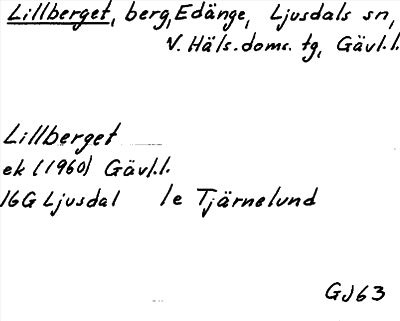 Lillberget, berg, Edänge, Ljusdals sn,
V. Häls. doms. tg, Gävl.l.
Lillberget
ek (1960) Gävl.l.
16G Ljusdal 1e Tjärnelund
GJ63